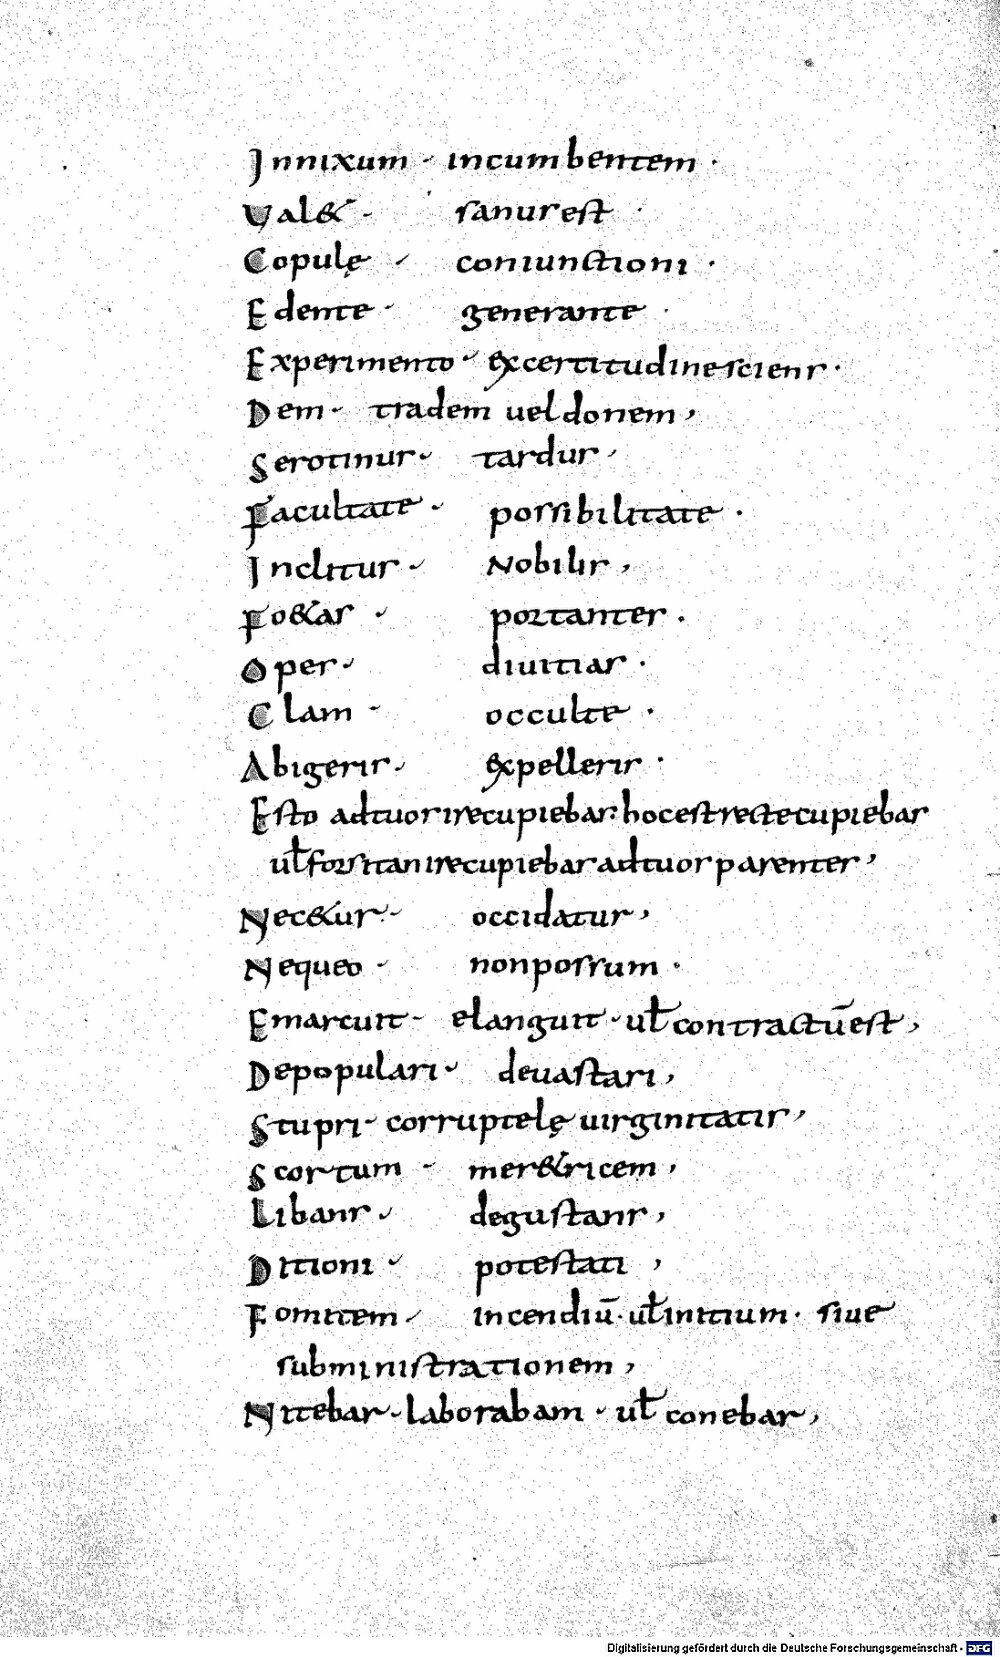 Innixum · incumbentem ·
Val& · sanus est ·
Copulę · coniunctioni ·
Edente · generante ·
Experimento · excertitudine sciens ·
Dem · tradem uel donem,
Serotinus · tardus,
Facultate · possibilitate ·
Inclitus · Nobilis,
Fo&as · portantes ·
Opes · diuitias ·
Clam · occulte ·
Abigeris · expelleris ·
Esto adtuos ire cupiebas · hoc est recte cupiebas
uł forsitan ire cupiebas adtuos parentes,
Nec&ur · occidatur,
Nequeo · non possum ·
Emarcuit · elanguit · uł contractū est,
Depopulari · deuastari,
Stupri · corruptelę uirginitatis,
Scortum · mer&ricem,
Libans · degustans,
Ditioni · potestati,
Fomitem · incendiū · uł initium · siue
subministrationem,
Nitebar · laborabam · uł conebar,
Digitalisierung gefördert durch die Deutsche Forschungsgemeinschaft - DFG